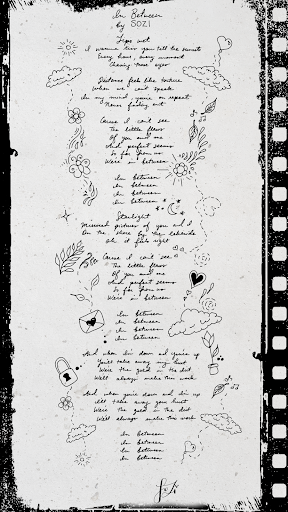 In Between
by SOZI
Lips wet
I wanna turn you till the sunset
Every hour, every moment
Chasing your eyes
Distance feels like torture
When we can't speak
In my mind you're on repeat
Never fading out
Cause I can't see
The little flaws
Of you and me
And perfect seems
So far from us
We're in between
In between
In between
In between
In between
Starlight
Mirrored pictures of you and I
On the shore by the lakeside
Oh it feels right
Cause I can't see
The little flaws
Of you and me
And perfect seems
So far from us
We're in between
In between
In between
In between
In between
And when I'm down and you're up
You'll take away my hurt
We're the gold in the dirt
We'll always make this work
And when you're down and I'm up
I'll take away your hurt
We're the gold in the dirt
We'll always make this work
In between
In between
In between
In between